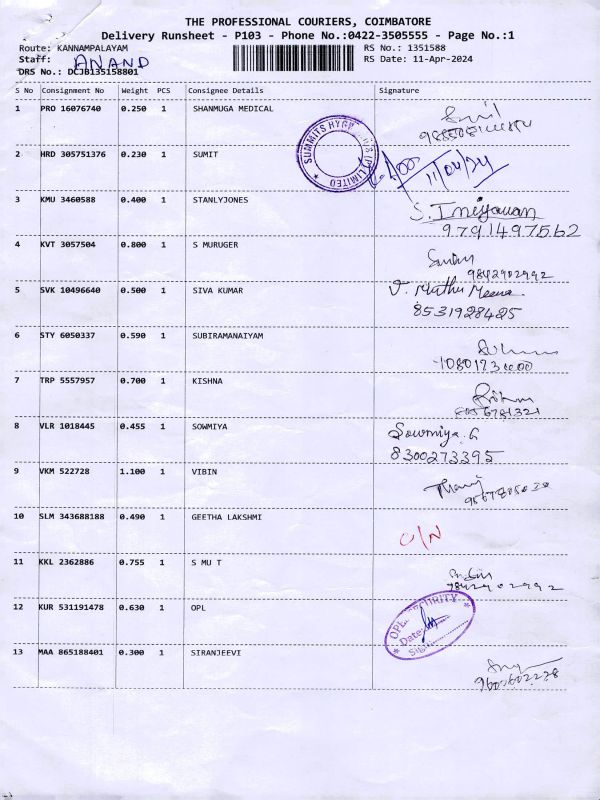 THE PROFESSIONAL COURIERS, COIMBATORE
Delivery Runsheet - P103 - Phone No.:0422-3505555 - Page No.:1
Route: KANNAMPALAYAM RS No.: 1351588
Staff: ANAND RS Date: 11-Apr-2024
DRS No.: DCJB135158801
S No Consignment No Weight PCS Consignee Details Signature
1 PRO 16076740 0.250 1 SHANMUGA MEDICAL
SUMMITS HYG (P) LIMITED
2 HRD 305751376 0.230 1 SUMIT 11/04/24
3 KMU 3460588 0.400 1 STANLYJONES
9791497562
4 KVT 3057504 0.800 1 S MURUGER
9842902992
5 SVK 10496640 0.500 1 SIVA KUMAR V. Muthu Meena
8531928425
6 STY 6050337 0.590 1 SUBIRAMANAIYAM
7 TRP 5557957 0.700 1 KISHNA
8 VLR 1018445 0.455 1 SOWMIYA Sowmiya.G
8300273395
9 VKM 522728 1.100 1 VIBIN
10 SLM 343688188 0.490 1 GEETHA LAKSHMI O/N
11 KKL 2362886 0.755 1 S MU T
12 KUR 531191478 0.630 1 OPL
OPL SECURITY
Date:
13 MAA 865188401 0.300 1 SIRANJEEVI